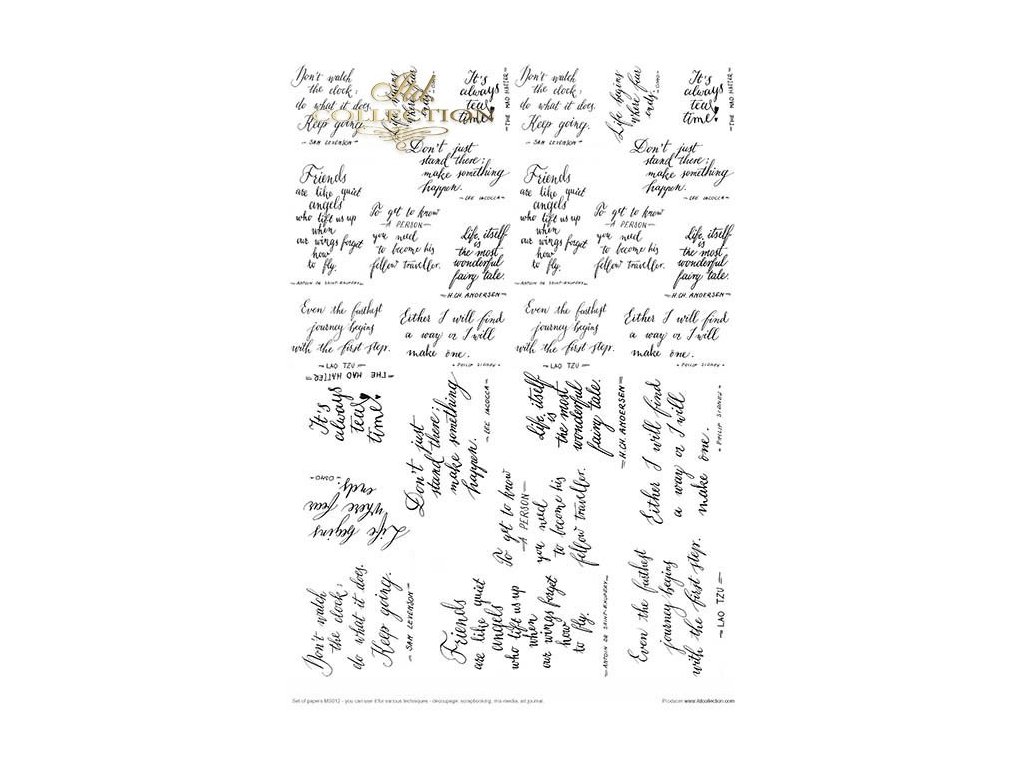 Don't watch
the clock;
do what it does.
Keep going.
- SAM LEVENSON -
Life begins
where fear
ends.
- OSHO -
It's
always
tea
time!
- THE MAD HATTER -
itd.
COLLECTION
Don't watch
the clock;
do what it does.
Keep going.
- SAM LEVENSON -
Life begins
where fear
ends.
- OSHO -
It's
always
tea
time!
- THE MAD HATTER -
Don't just
stand there;
make something
happen.
- LEE IACOCCA -
Don't just
stand there;
make something
happen.
- LEE IACOCCA -
Friends
are like quiet
angels
who lift us up
when
our wings forget
how
to fly.
- ANTOIN DE SAINT-EXUPERY -
To get to know
- A PERSON -
you need
to become his
fellow traveller.
Life itself
is
the most
wonderful
fairy tale.
- H.CH. ANDERSEN -
Friends
are like quiet
angels
who lift us up
when
our wings forget
how
to fly.
- ANTOIN DE SAINT-EXUPERY -
To get to know
- A PERSON -
you need
to become his
fellow traveller.
Life itself
is
the most
wonderful
fairy tale.
- H.CH. ANDERSEN -
Even the farthest
journey begins
with the first step.
- LAO TZU -
Either I will find
a way or I will
make one.
- PHILIP SIDNEY -
Even the farthest
journey begins
with the first step.
- LAO TZU -
Either I will find
a way or I will
make one.
- PHILIP SIDNEY -
It's
always
tea
time!
- THE MAD HATTER -
Don't just
stand there;
make something
happen.
- LEE IACOCCA -
Life itself
is
the most
wonderful
fairy tale.
- H.CH. ANDERSEN -
Either I will find
a way or I will
make one.
- PHILIP SIDNEY -
Life begins
where fear
ends.
- OSHO -
To get to know
- A PERSON -
you need
to become his
fellow traveller.
Don't watch
the clock;
do what it does.
Keep going.
- SAM LEVENSON -
Friends
are like quiet
angels
who lift us up
when
our wings forget
how
to fly.
- ANTOIN DE SAINT-EXUPERY -
Even the farthest
journey begins
with the first step.
- LAO TZU -
Set of papers MS012 - you can use it for various techniques - decoupage, scrapbooking, mix media, art journal.
Producer www.itdcollection.com